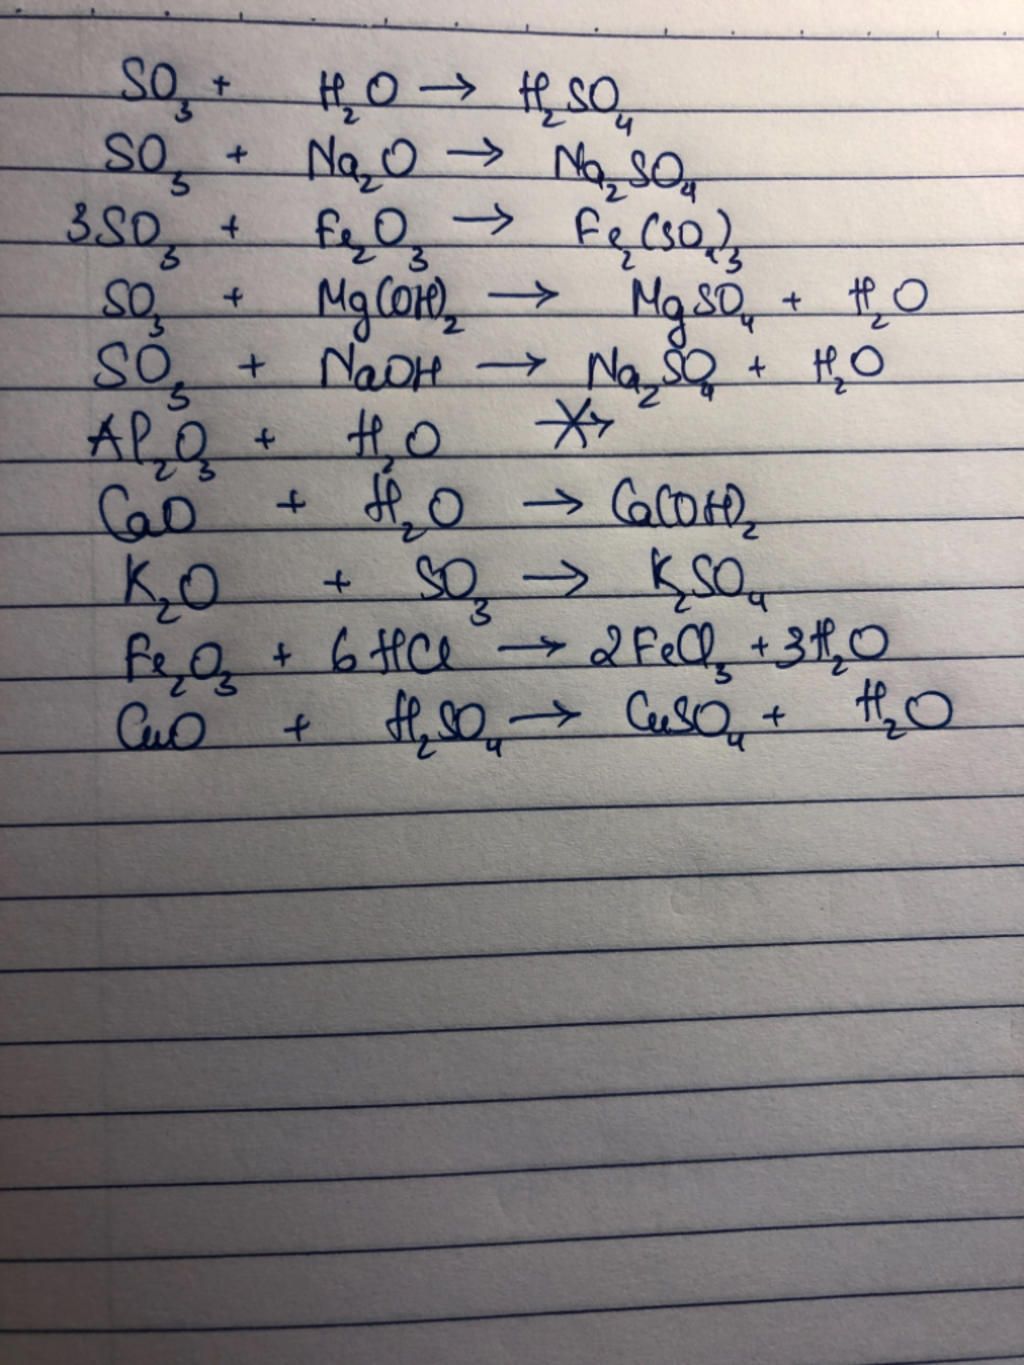 SO₃ + H₂O → H₂SO₄
SO₃ + Na₂O → Na₂SO₄
3SO₃ + Fe₂O₃ → Fe₂(SO₄)₃
SO₃ + Mg(OH)₂ → MgSO₄ + H₂O
SO₃ + NaOH → Na₂SO₄ + H₂O
Al₂O₃ + H₂O ↛
CaO + H₂O → Ca(OH)₂
K₂O + SO₃ → K₂SO₄
Fe₂O₃ + 6HCl → 2FeCl₃ + 3H₂O
CuO + H₂SO₄ → CuSO₄ + H₂O